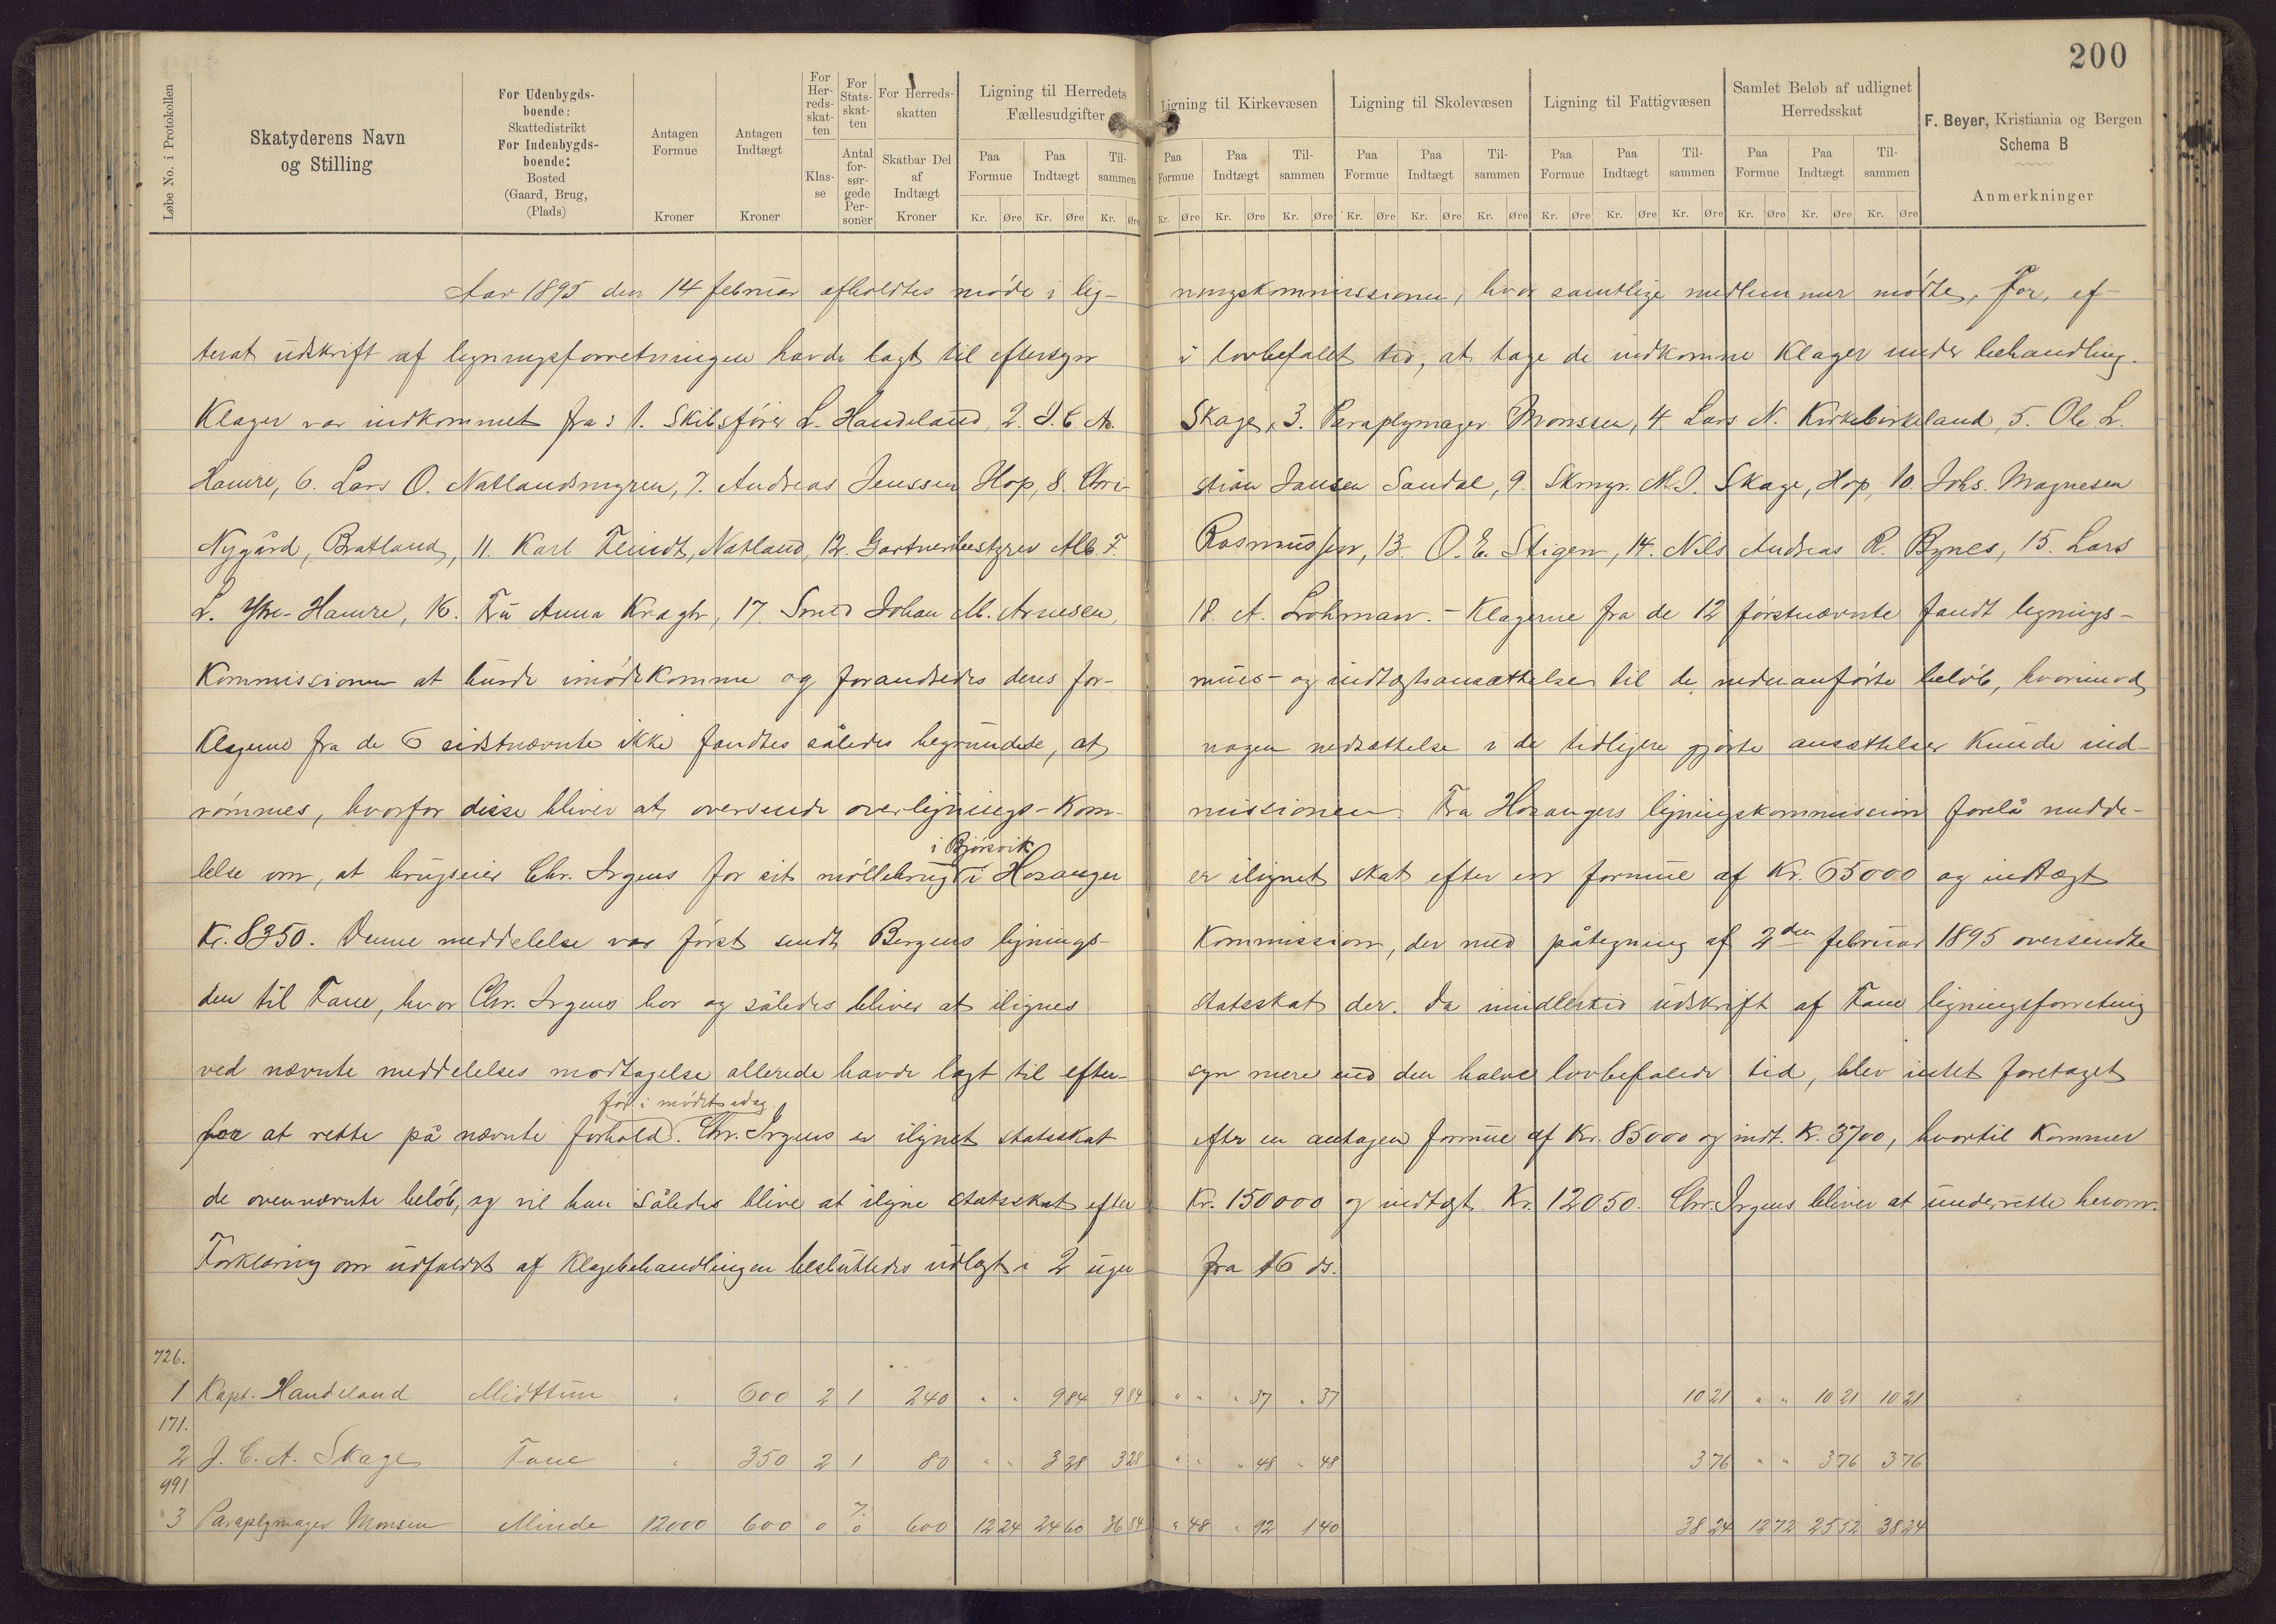 200
Løbe No. i Protokollen
Skatyderens Navn og Stilling
For Udenbygdsboende: Skattedistrikt For Indenbygdsboende: Bosted (Gaard, Brug, (Plads)
Antagen Formue Kroner
Antagen Indtægt Kroner
For Herredsskatten Klasse
For Statsskatten Antal forsørgede Personer
For Herredsskatten Skatbar Del af Indtægt Kroner
Ligning til Herredets Fællesudgifter Paa Formue Paa Indtægt Tilsammen Kr. Øre Kr. Øre Kr. Øre
Ligning til Kirkevæsen Paa Formue Paa Indtægt Tilsammen Kr. Øre Kr. Øre Kr. Øre
Ligning til Skolevæsen Paa Formue Paa Indtægt Tilsammen Kr. Øre Kr. Øre Kr. Øre
Ligning til Fattigvæsen Paa Formue Paa Indtægt Tilsammen Kr. Øre Kr. Øre Kr. Øre
Samlet Beløb af udlignet Herredsskat Paa Formue Paa Indtægt Tilsammen Kr. Øre Kr. Øre Kr. Øre
F. Beyer, Kristiania og Bergen
Schema B
Anmerkninger
Aar 1895 den 14 februar afholdtes møde i lig- ningskommissionen, hvor samtlige medlemmer mødte, for, ef-
terat udskrift af ligningsforretningen havde lagt til eftersyn i lovbefalet tid, at tage de indkomne klager under behandling.
Klager var indkommet fra: 1. Skibsfører L. Handeland, 2. J. C. A. Skage, 3. Paraplymager Monssen, 4. Lars N. Kirkebirkeland, 5. Ole L.
Hamre, 6. Lars O. Natlandsmyren, 7. Andreas Jenssen Hop, 8. Chri- stian Jansen Sandal, 9. Skmgr. M. J. Skage, Hop, 10. Johs. Magnesen
Nygård, Bratland, 11. Karl Flindt, Natland, 12. Gartnerbestyrer Alb. F. Rasmussen, 13. O. E. Stigen, 14. Nils Andreas R. Bynes, 15. Lars
L. Ytre-Hamre, 16. Fru Anna Kragh, 17. Smed Johan M. Arnesen, 18. A. Lohman. - Klagerne fra de 12 førstnævnte fandt lignings-
kommissionen at burde imødekomme og forandredes deres for- mues- og indtægtsansættelser til de nedenanførte beløb, hvorimod
klagerne fra de 6 sidstnævnte ikke fandtes således begrundede, at nogen nedsættelse i de tidligere gjorte ansættelser kunde ind-
rømmes, hvorfor disse bliver at oversende overlignings-kom- missionen. Fra Hosangers ligningskommission forelå medde-
i Bjørsvik
lelse om, at brugseier Chr. Irgens for sit møllebrug i Hosanger er ilignet skat efter en formue af Kr. 65000 og indtægt
Kr. 8350. Denne meddelelse var først sendt Bergens lignings- kommission, der med påtegning af 2den februar 1895 oversendte
den til Fane, hvor Chr. Irgens bor og således bliver at ilignes statsskat der. Da imidlertid udskrift af Fane ligningsforretning
ved nævnte meddelelses modtagelse allerede havde lagt til efter- syn mere end den halve lovbefalede tid, blev intet foretaget
før i mødet idag.
for at rette på nævnte forhold. Chr. Irgens er ilignet statsskat efter en antagen formue af Kr. 85000 og indt. Kr. 3700, hvortil kommer
de ovennævnte beløb, og vil han således blive at iligne statsskat efter Kr. 150000 og indtægt Kr. 12050. Chr. Irgens bliver at underrette herom.
Forklaring om udfaldet af klagebehandlingen besluttedes udlagt i 2 uger fra 16 ds.
726.
1 Kapt. Handeland Midttun " 600 2 1 240 " " 9 84 9 84 " " " 37 " 37 10 21 " " 10 21 10 21
171.
2 J. C. A. Skage Fane " 350 2 1 80 " " 3 28 3 28 " " " 48 " 48 3 76 " " 3 76 3 76
991
3 Paraplymager Monsen Minde 12000 600 0 0 600 12 24 24 60 36 84 " 48 " 92 1 40 38 24 12 72 25 52 38 24